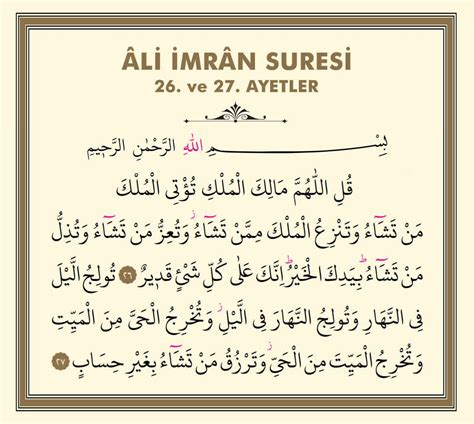 ÂLİ İMRÂN SURESİ
26. ve 27. AYETLER
بِسْمِ اللّٰهِ الرَّحْمٰنِ الرَّحٖيمِ
قُلِ اللّٰهُمَّ مَالِكَ الْمُلْكِ تُؤْتِى الْمُلْكَ
مَنْ تَشَٓاءُ وَتَنْزِعُ الْمُلْكَ مِمَّنْ تَشَٓاءُۘ وَتُعِزُّ مَنْ تَشَٓاءُ وَتُذِلُّ
مَنْ تَشَٓاءُؕ بِيَدِكَ الْخَيْرُؕ اِنَّكَ عَلٰى كُلِّ شَئٍْ قَدٖيرٌ ﴿٢٦﴾ تُولِجُ الَّيْلَ
فِى النَّهَارِ وَتُولِجُ النَّهَارَ فِى الَّيْلِۘ وَتُخْرِجُ الْحَىَّ مِنَ الْمَيِّتِ
وَتُخْرِجُ الْمَيِّتَ مِنَ الْحَىِّۘ وَتَرْزُقُ مَنْ تَشَٓاءُ بِغَيْرِ حِسَابٍ ﴿٢٧﴾